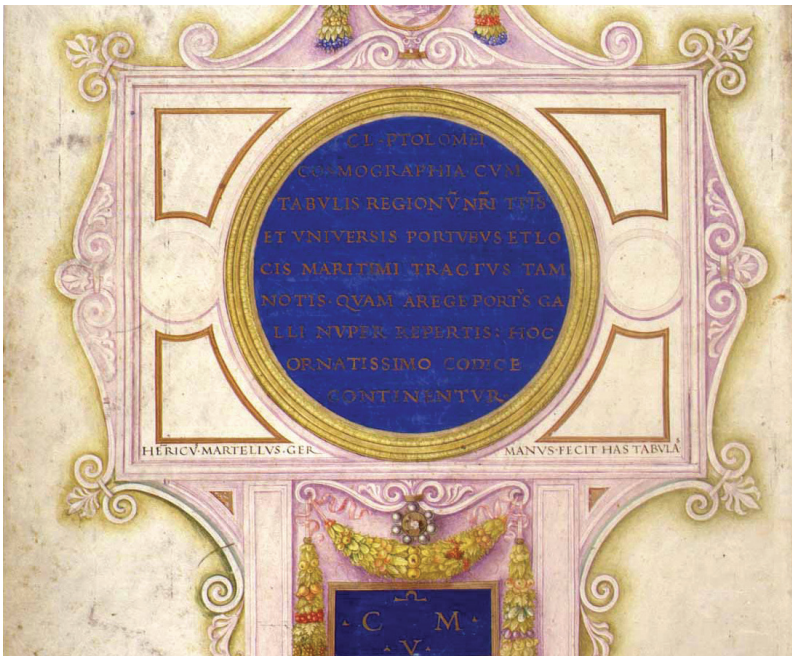 CL·PTOLOMEI
COSMOGRAPHIA·CVM
TABVLIS REGIONV̄ NR̄I
ET VNIVERSIS PORTVBVS ET LO
CIS MARITIMI TRACTVS TAM
NOTIS·QVAM AREGE PORTVS GA
LLI NVPER REPERTIS: HOC
ORNATISSIMO CODICE
CONTINENTVR·
HERICV̓·MARTELLVS·GER MANVS·FECIT HAS TABVLAS
·C M·
·V·